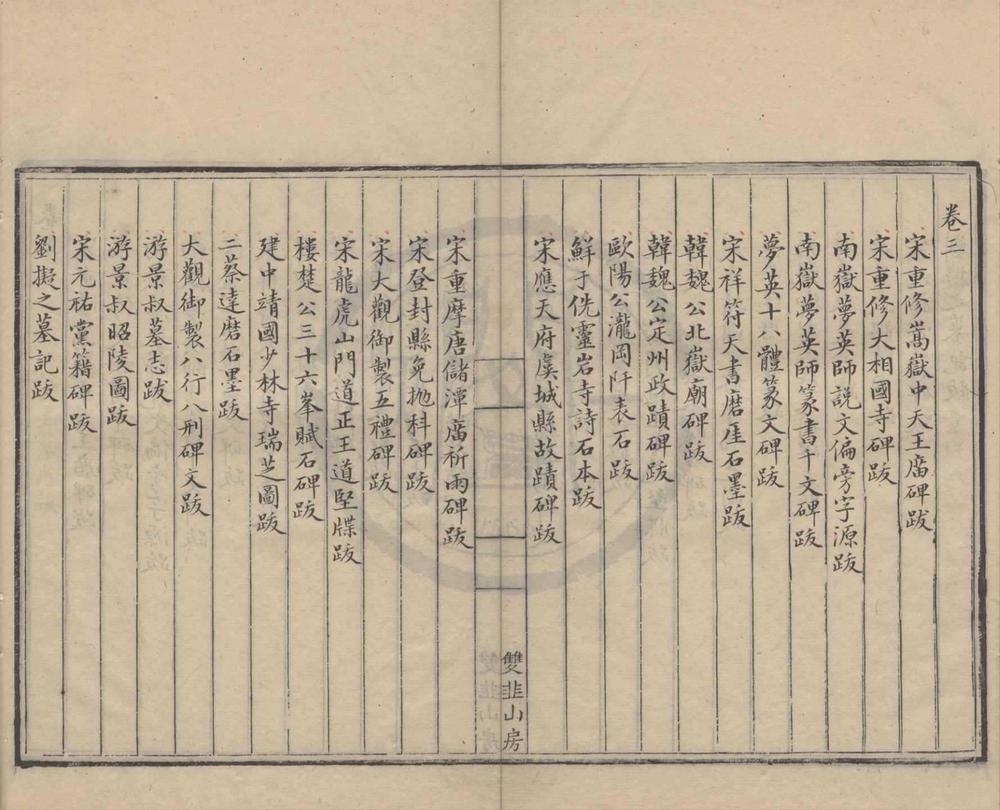 卷三
宋重修嵩嶽中天王廟碑跋
宋重修大相國寺碑跋
南嶽夢英師説文偏旁字源跋
南嶽夢英師篆書千文碑跋
夢英十八體篆文碑跋
宋祥符天書磨崖石墨跋
韓魏公北嶽廟碑跋
韓魏公定州政蹟碑跋
歐陽公瀧岡阡表石跋
鮮于侁靈岩寺詩石本跋
宋應天府虞城縣故蹟碑跋
雙韭山房
宋重摩唐儲潭廟祈雨碑跋
宋登封縣免拋科碑跋
宋大觀御製五禮碑跋
宋龍虎山門道正王道堅牒跋
樓楚公三十六峯賦石碑跋
建中靖國少林寺瑞芝圖跋
二蔡達磨石墨跋
大觀御製八行八刑碑文跋
游景叔墓志跋
游景叔昭陵圖跋
宋元祐黨籍碑跋
劉擬之墓記跋